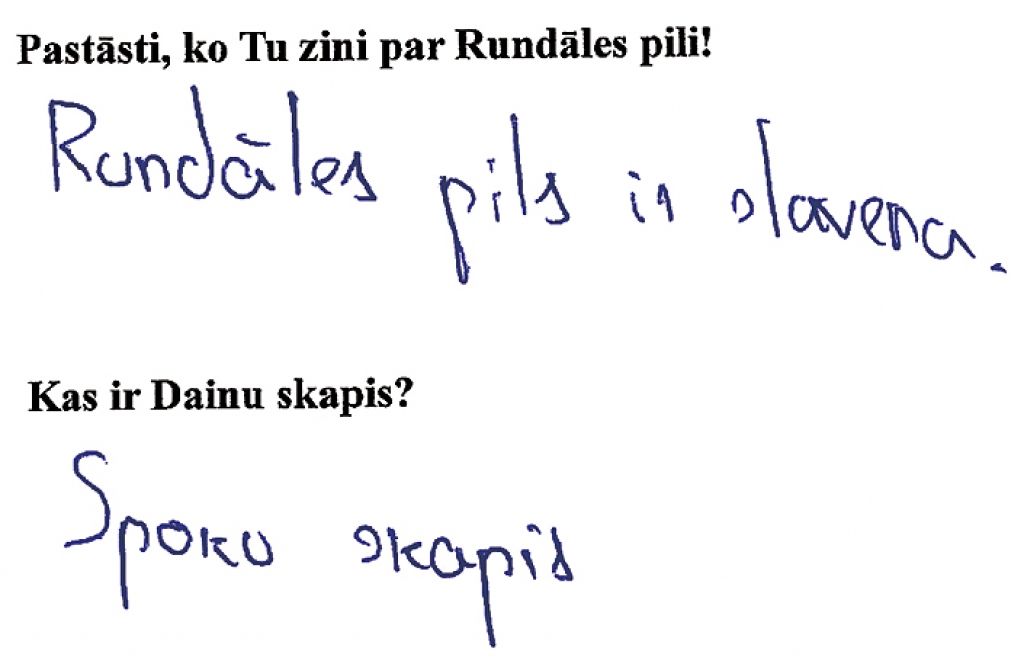 Pastāsti, ko Tu zini par Rundāles pili!
Rundāles pils ir slavena.
Kas ir Dainu skapis?
Spoku skapis